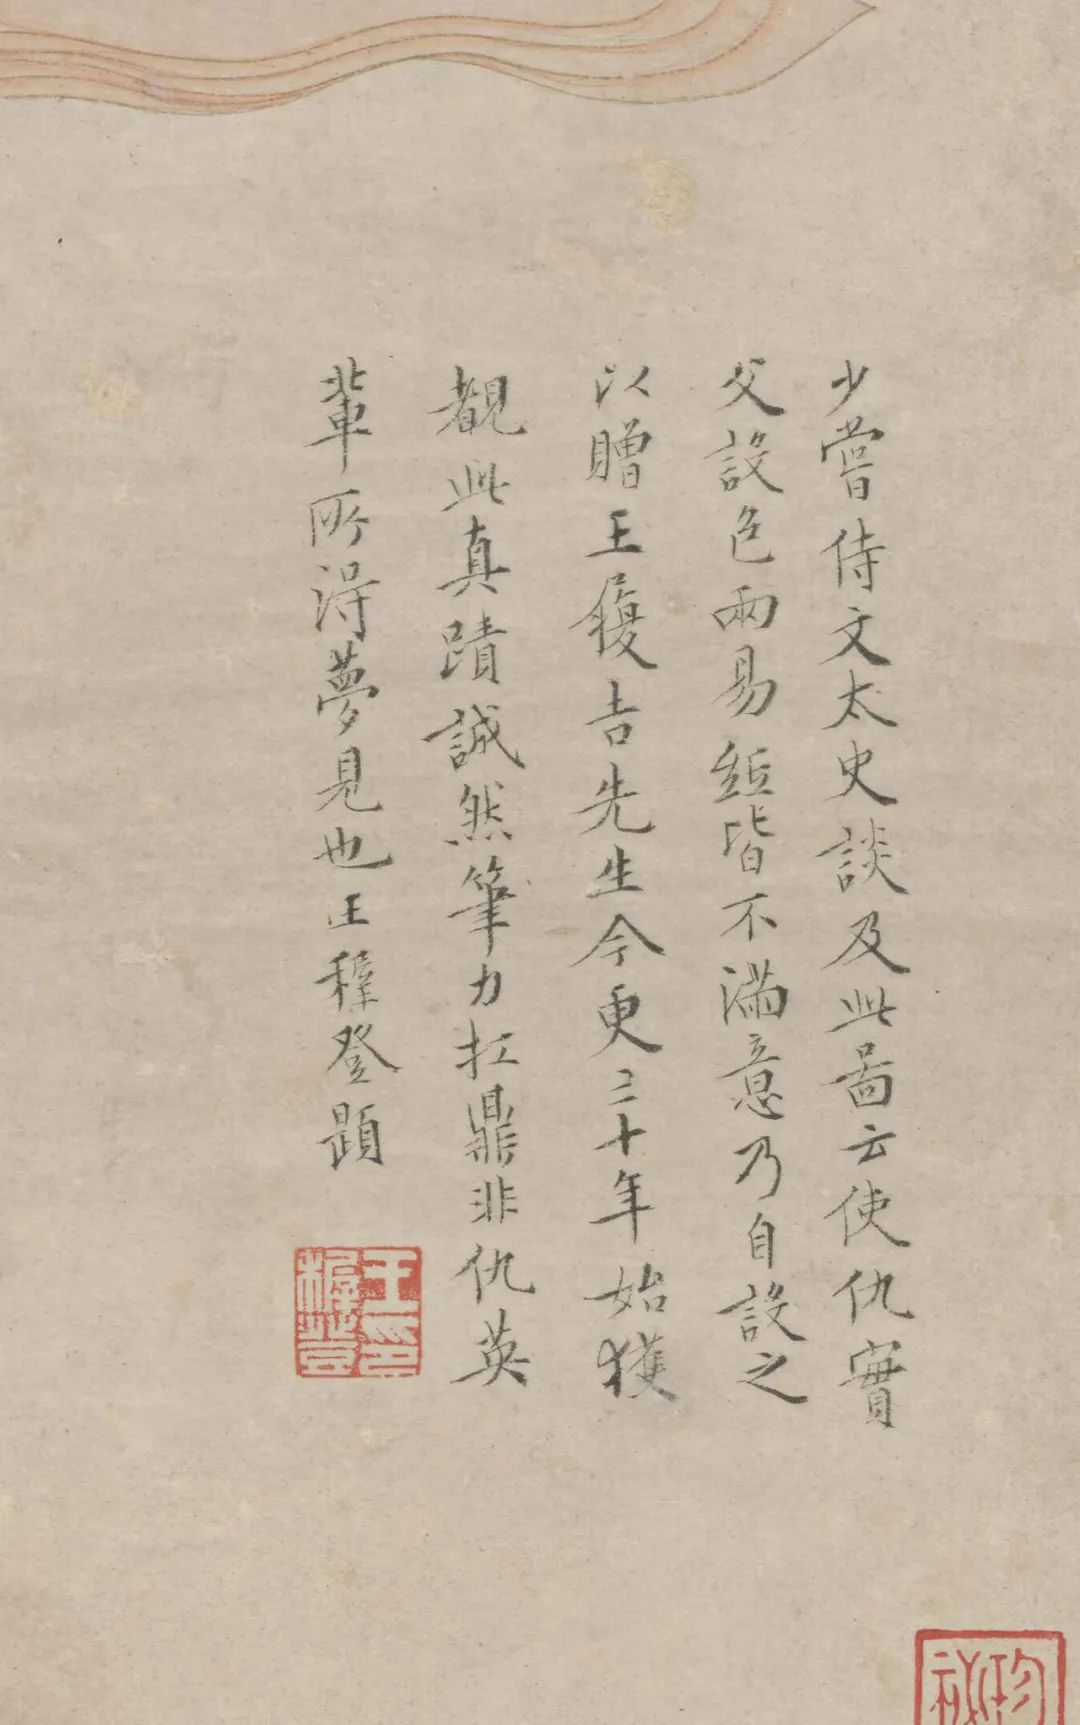 少嘗侍文太史談及此圖云使仇實
父設色兩易紙皆不滿意乃自設之
以贈王履吉先生今更二十年始獲
覩此真蹟誠然筆力扛鼎非仇英
輩所得夢見也王穉登題
王印
穉登
珍
祕